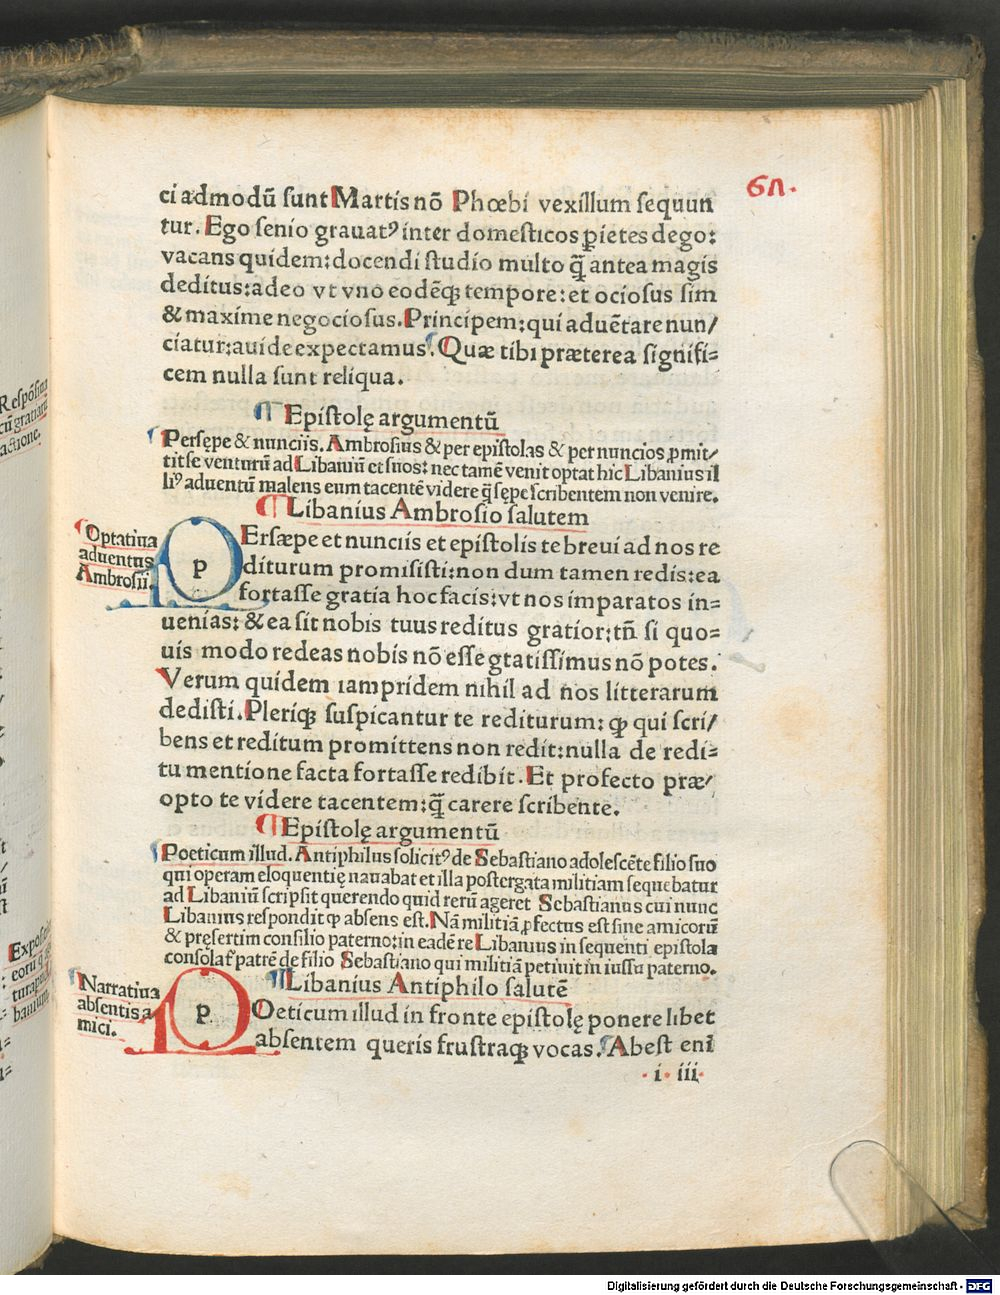 6Λ.
ci admodū sunt Martis nō Phœbi vexillum sequun
tur. Ego senio grauatꝰ inter domesticos ꝑietes dego:
vacans quidem: docendi studio multo q̄̄ antea magis
deditus: adeo vt vno eodēqꝫ tempore: et ociosus sim
& maxime negociosus. Principem: qui aduētare nun/
ciatur: auide expectamus. Quæ tibi præterea signifi=
cem nulla sunt reliqua.
¶ Epistolę argumentū
Persępe & nunciis. Ambrosius & per epistolas & per nuncios ꝓmit/
tit se venturū ad Libaniū et suos: nec tamē venit optat hic Libanius il
liꝰ aduentū malens eum tacentē videre q̄̄ sępe scribentem non venire.
¶ Libanius Ambrosio salutem
Optatiua
aduentus
Ambrosii.
PErsæpe et nunciis et epistolis te breui ad nos re
diturum promisisti: non dum tamen redis: ea
fortasse gratia hoc facis: vt nos imparatos in=
uenias: & ea sit nobis tuus reditus gratior: tn̄ si quo=
uis modo redeas nobis nō esse gtatissimus nō potes.
Verum quidem iampridem nihil ad nos litterarum
dedisti. Pleriqꝫ suspicantur te rediturum: ꝙ qui scri/
bens et reditum promittens non redit: nulla de redi=
tu mentione facta fortasse redibit. Et profecto præ/
opto te videre tacentem: q̄̄ carere scribente.
¶ Epistolę argumentū
Poeticum illud. Antiphilus solicitꝰ de Sebastiano adolescēte filio suo
qui operam eloquentię nauabat et illa postergata militiam sequebatur
ad Libaniū scripsit querendo quid rerū ageret Sebastianus cui nunc
Libanius respondit ꝙ absens est. Nā militiā ꝓfectus est sine amicorū
& pręsertim consilio paterno: in eadē re Libanius in sequenti epistola
consolat patrē de filio Sebastiano qui militiā petiuit in iussu paterno.
¶ Libanius Antiphilo salutē
Narratiua
absentis a
mici.
POeticum illud in fronte epistolę ponere libet
absentem queris frustraqꝫ vocas. Abest eni
. i . iii.
Respōsiua
cū gratiarū
actione.
Digitalisierung gefördert durch die Deutsche Forschungsgemeinschaft - DFG